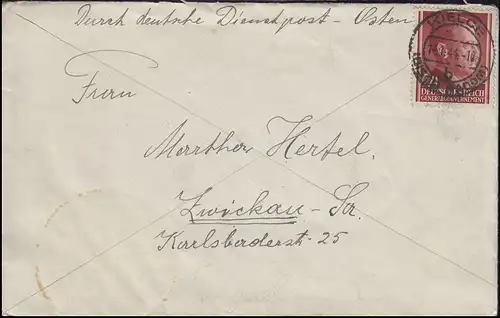 Durch deutsche Dienstpost - Osten
KIELCE
DEUTSCHES REICH
GENERALGOUVERNEMENT
Herrn
Hertel,
Zwickau - Sa.
Karlsbaderstr. 25